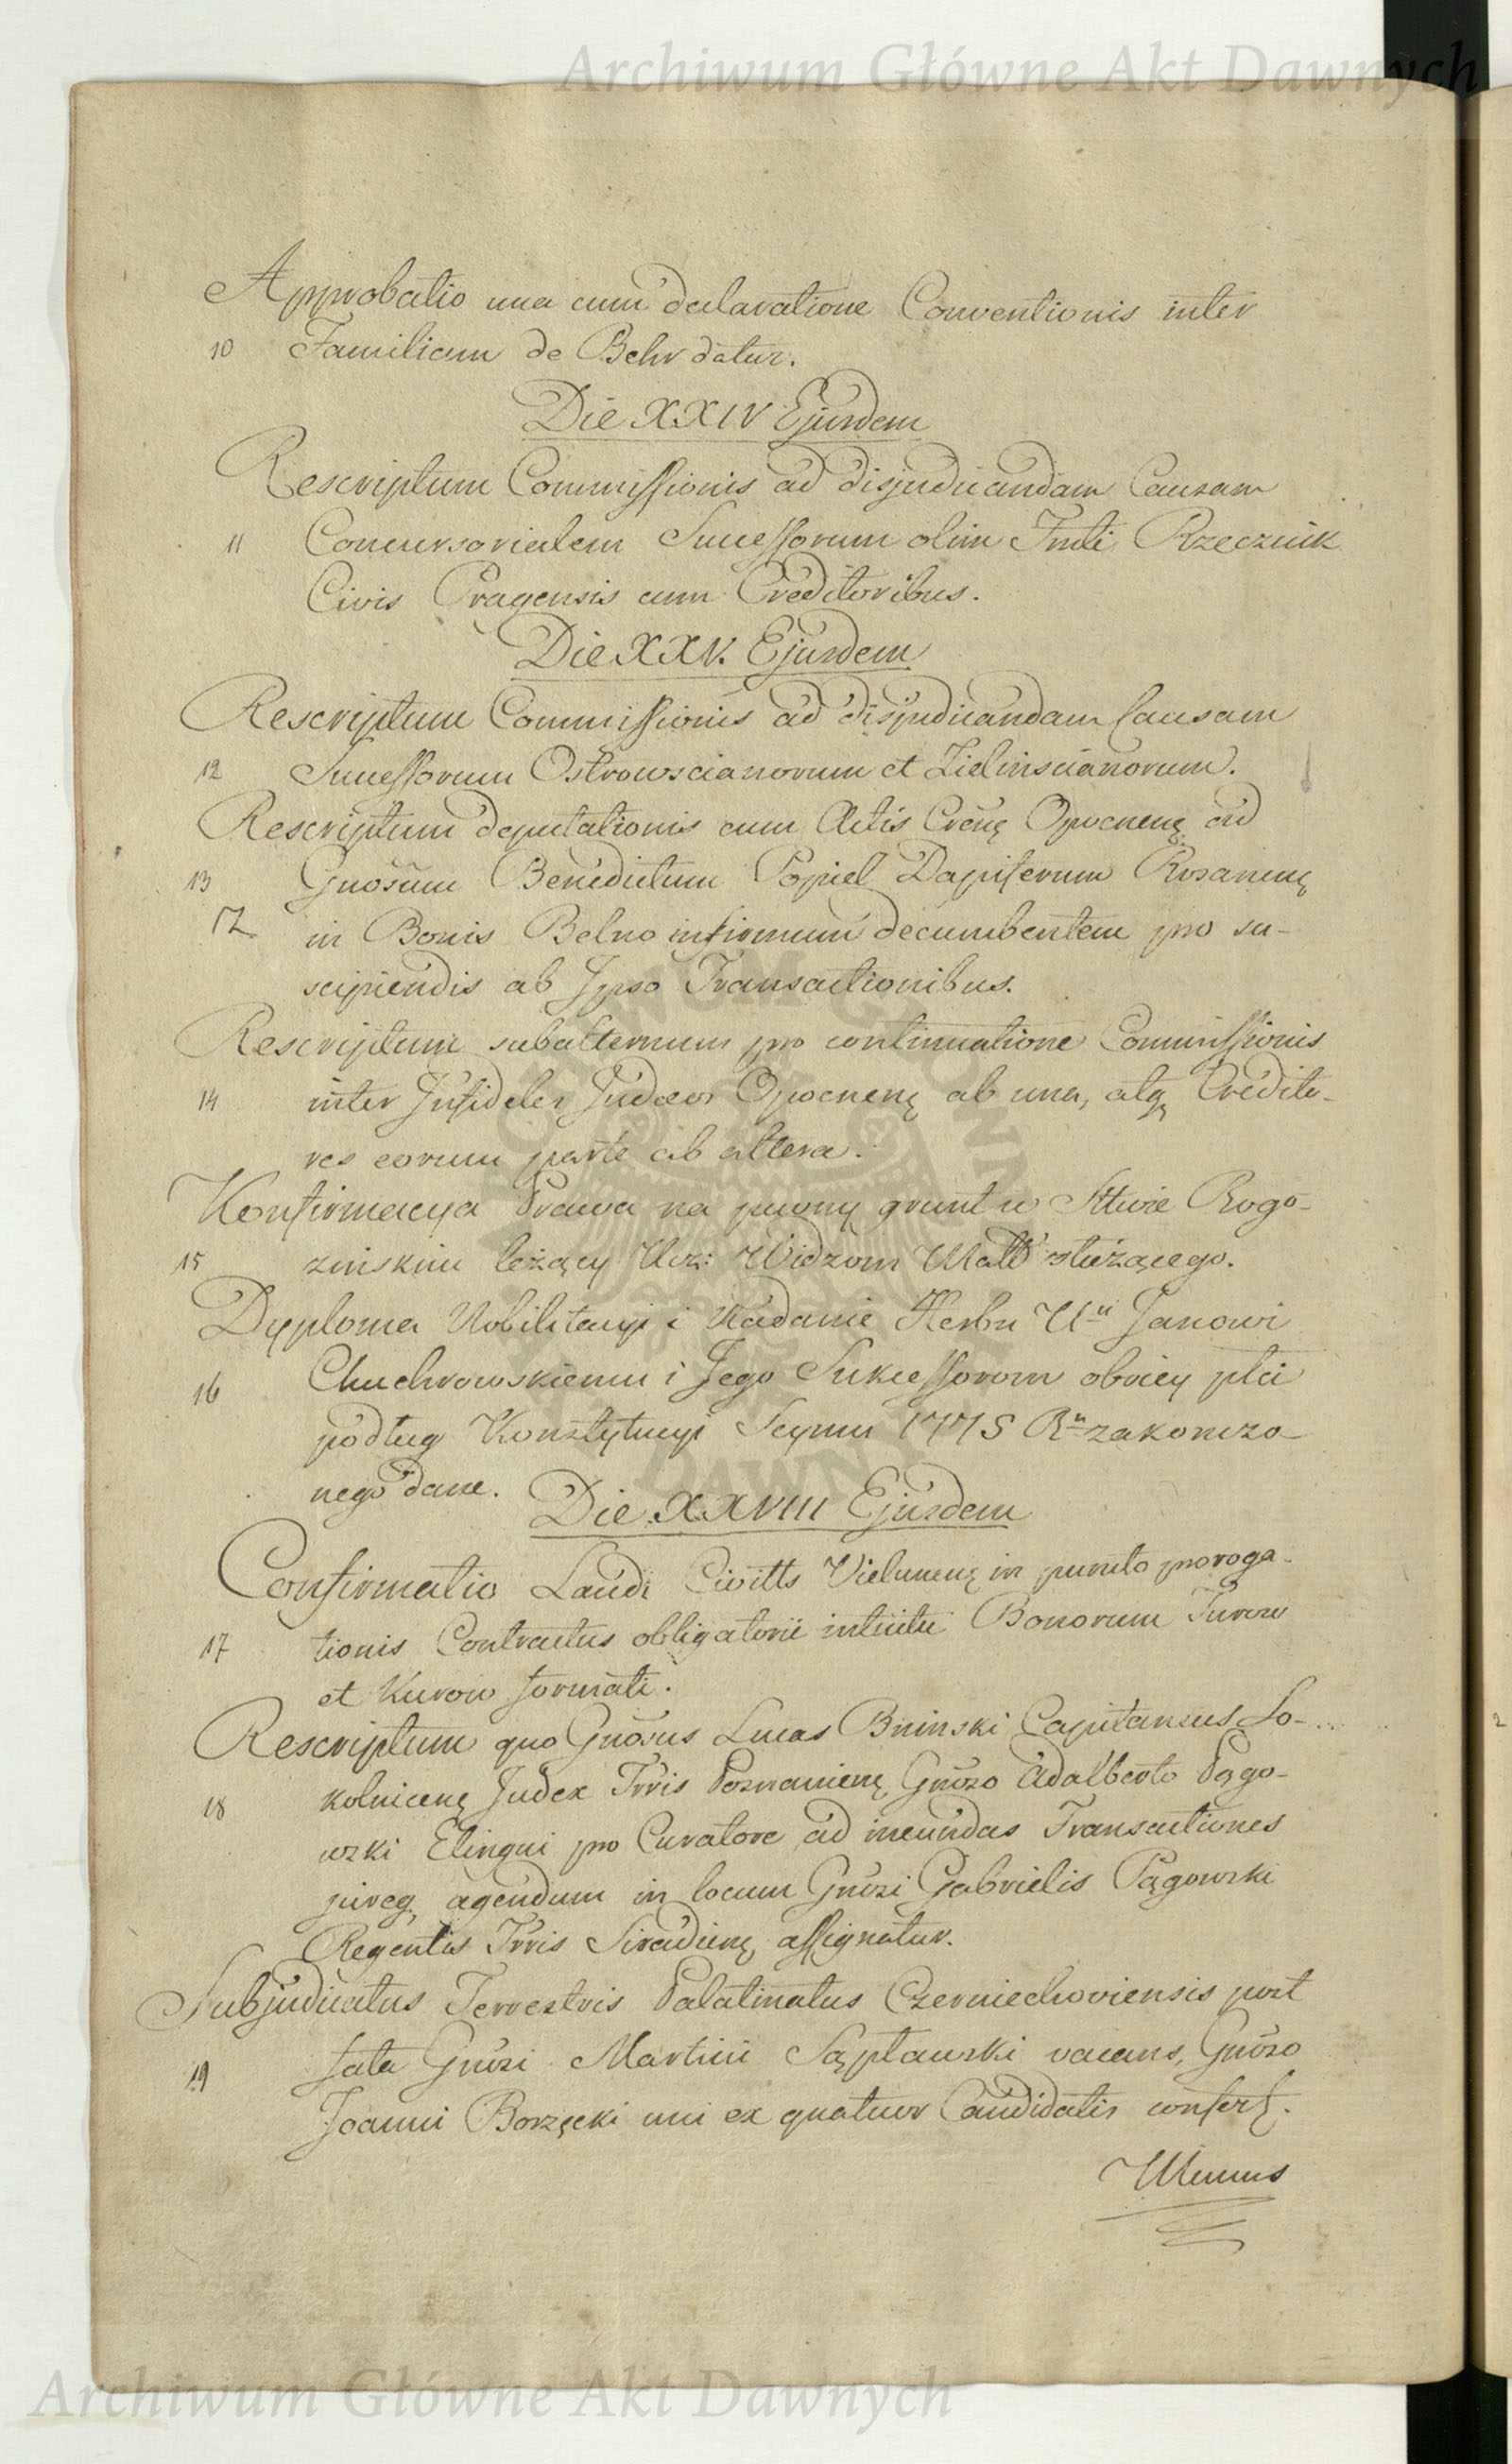 Archiwum Główne Akt Dawnych
Approbatio una cum declaratione Conventionis inter
10 Familiam de Behr datur.
Die XXIV Ejusdem
Rescriptum Commissionis ad disjudicandam Causam
11 Concursorialem Successorum olim Rzecznik
Civis Pragensis cum Creditoribus.
Die XXV. Ejusdem
Rescriptum Commissionis ad disjudicandam Causam
12 Successorum Ostrowscianorum et Zielinscianorum.
Rescriptum deputationis cum Actis Opocnenę ad
13 Gnosum Benedictum Popiel Dapiferum Rosanenę
in Bonis Belno infirmum decumbentem pro su-
scipiendis ab Ipso Transactionibus.
Rescriptum subalternum pro continuatione Commissionis
14 inter Infideles Judæos Opocnenę ab una, atqꝫ Credito-
res eorum parte ab altera.
Konfirmacya Prawa na pewny grunt w Sttwie Rogo-
15 zinskim leżący Ur: Widzom Małż służącego.
Dyploma Nobilitacyi i Nadanie Herbu Ur Janowi
16 Chuchrowskiemu i Jego Sukcessorom oboiey płci
podług Konstytucyi Seymu 1775 R zakonczo-
nego dane.
Die XXVIII Ejusdem
Confirmatio Laudi Civitts Vielunenę in puncto proroga-
17 tionis Contractus obligatorii intuitu Bonorum Turow
et Kurow formati.
Rescriptum quo Gnosus Lucas Bninski Capitaneus So-
18 kolnicenę Judex Trris Posnanienę Gnoso Adalberto Pągo-
wski Elingui pro Curatore ad ineundas Transactiones
jureqꝫ agendum in locum Gnosi Gabrielis Pągowski
Regentis Trris Siradienę assignatur.
Subjudicatus Terrestris Palatinatus Czerniechoviensis post
19 fata Gnosi Martini vacans, Gnoso
Joanni Borzęcki uni ex quatuor Candidatis confert.
Archiwum Główne Akt Dawnych